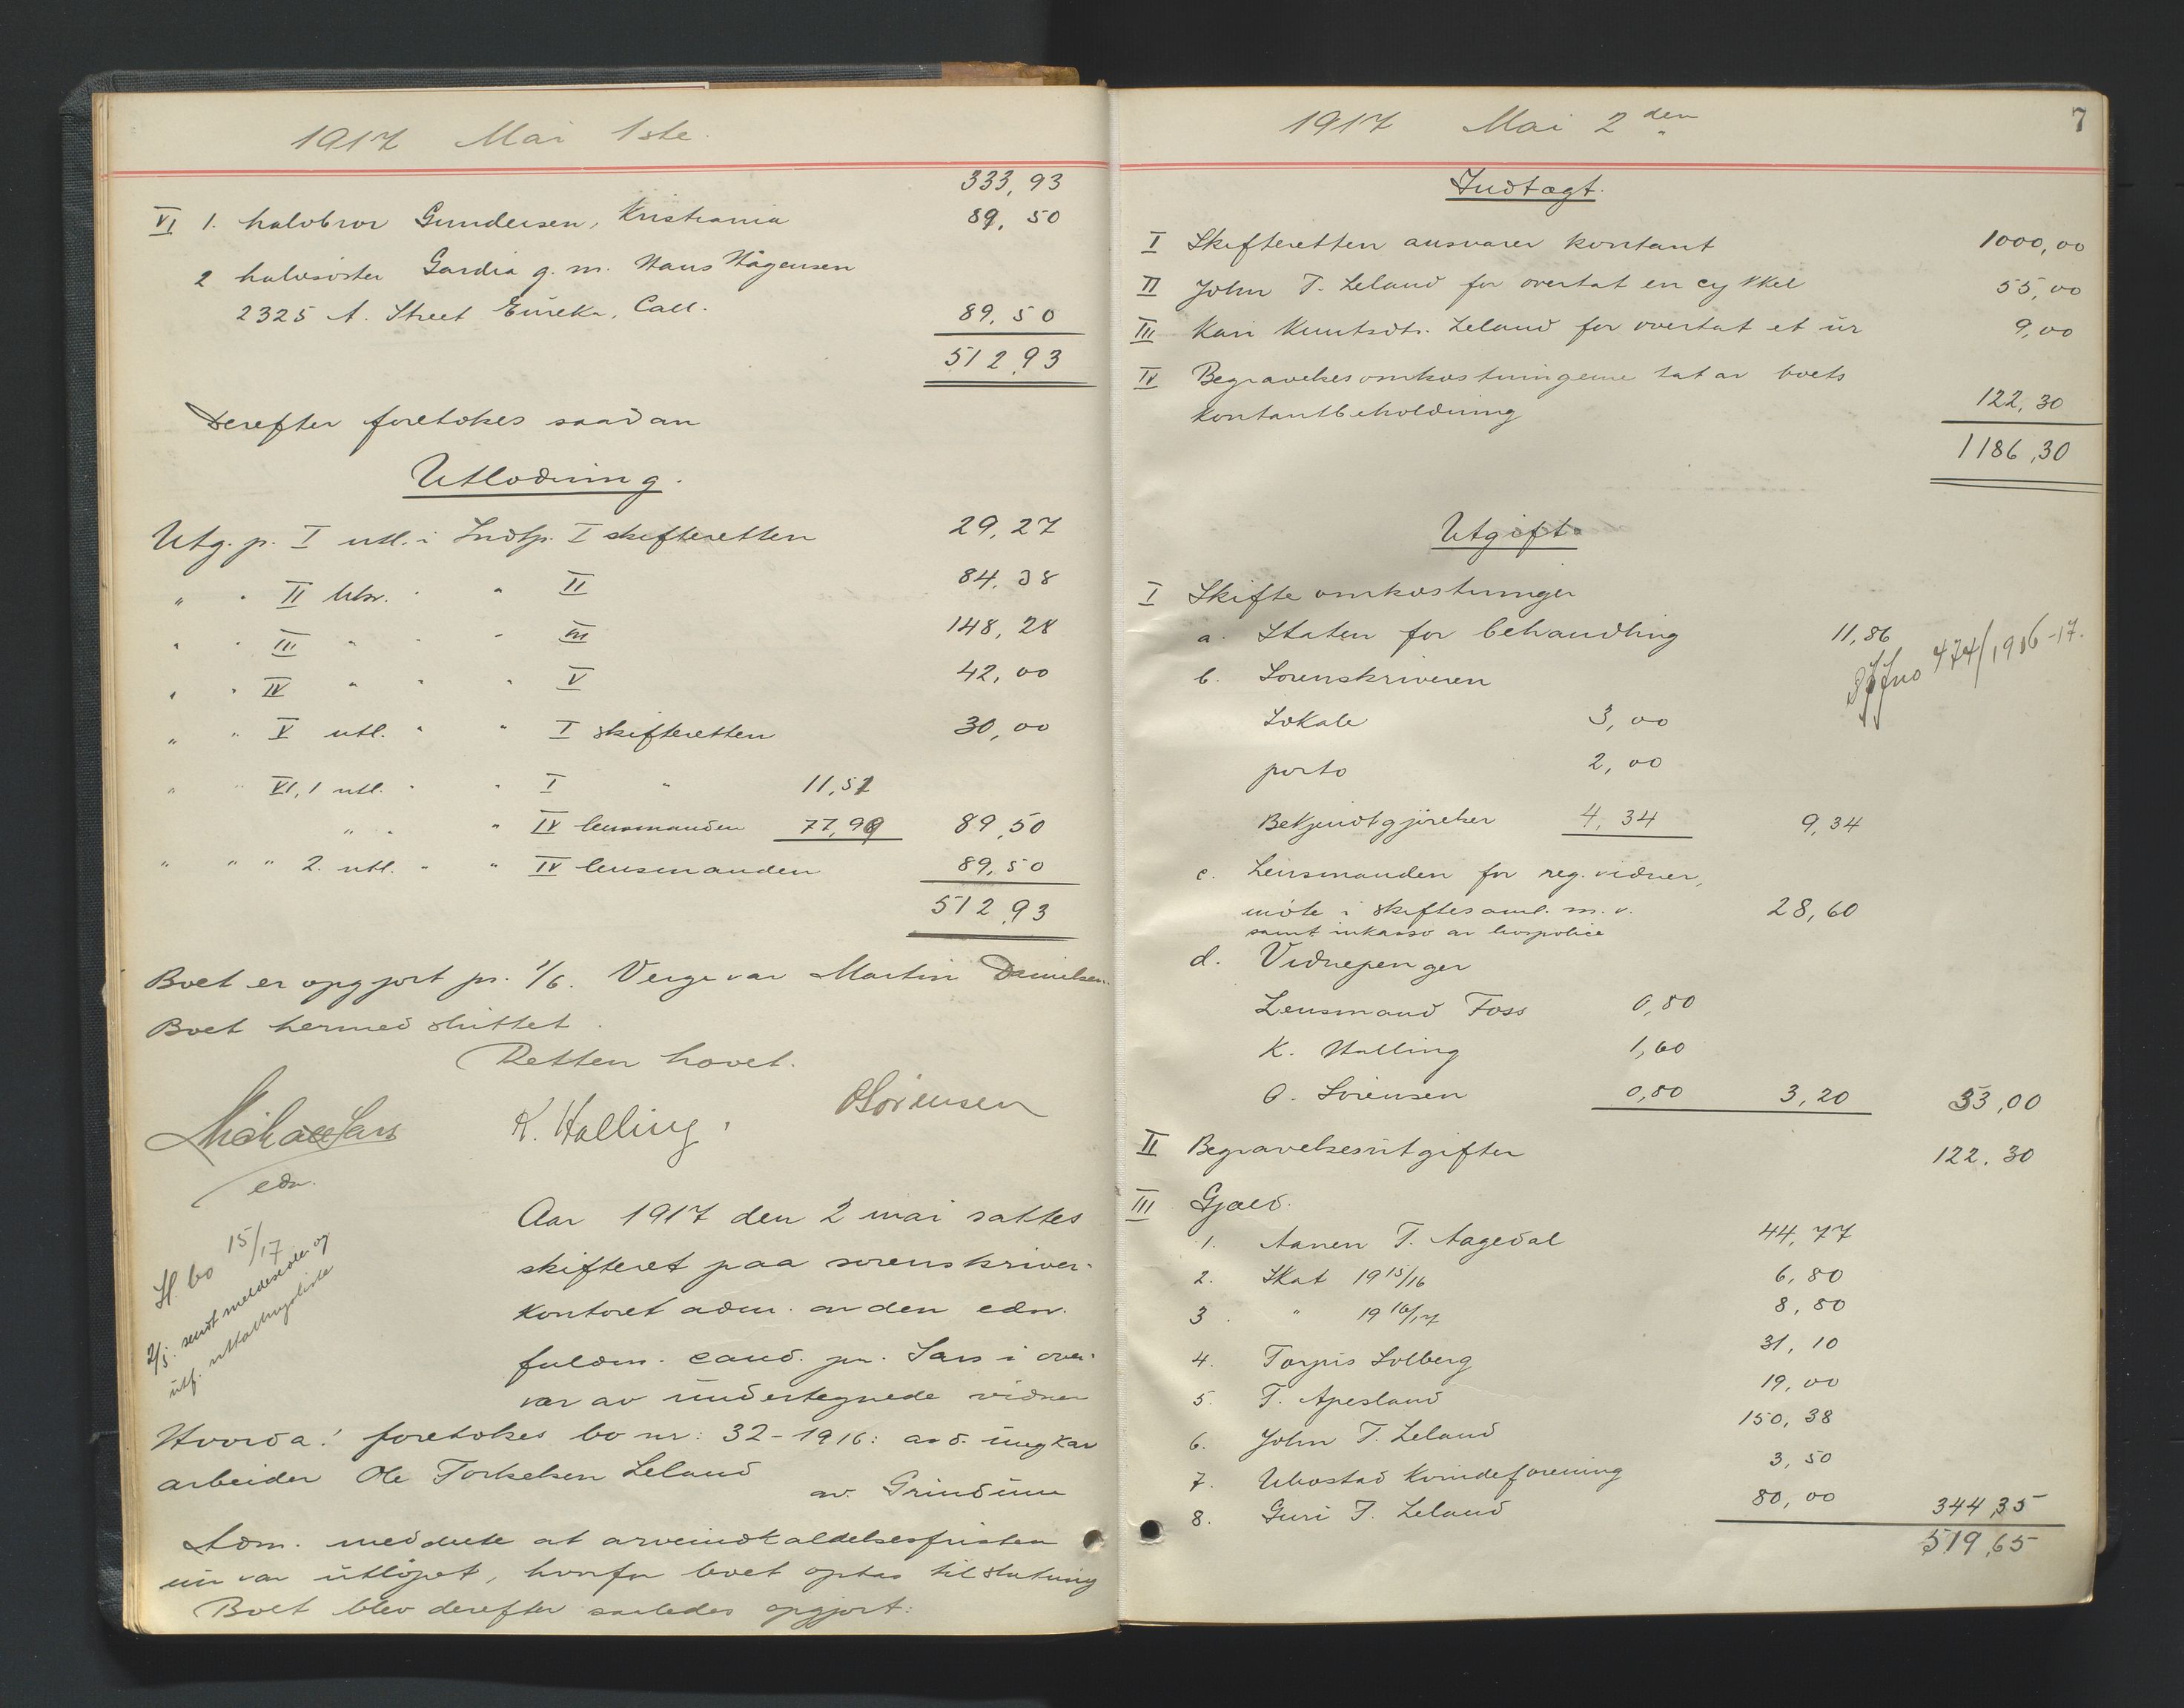 1917 Mai 1ste.
333,93
VI 1. halvbror Gundersen, Kristiania 89,50
2 halvsöster Gardia g. m. Hans Hågensen
2325 A. Street Eureka, Call. 89,50
512,93
Derefter foretokes saadan
Utlodning.
Utg. p. I utl. i Indtp. I skifteretten 29,27
" " II " " II 84,38
" " III " " " III 148,28
" " IV " " " V 42,00
" " V utl. " " I skifteretten 30,00
" " VI, 1 utl. " " I " 11,51
" " " IV lensmanden 77,99 89,50
" " " 2. utl. " " IV lensmanden 89,50
512,93
Boet er opgjort pr. 1/6. Verge var Martin Danielsen.
Boet hermed sluttet.
Retten hævet.
Michael Sars K. Halling. O Sörensen
edsv.
Aar 1917 den 2 mai sattes
skifteret paa sorenskriver-
kontoret adm. av den edsv.
fuldm. cand. jur. Sars i over-
vær av undertegnede vidner
H. bo 15/17
2/5. sendt meldeseddel og
utf. utlodningsliste
Hvorda! foretokes bo nr: 32-1916: avd. ungkar
arbeider Ole Torkelsen Leland
av Grindum
Adm. meddelte at arveindkaldelsesfristen
nu var utlöpet, hvorfor boet optas til slutning
Boet blev derefter saaledes opgjort:
1917 Mai 2den 7
Indtægt.
I Skifteretten ansvarer kontant 1000,00
II John T. Leland for overtat en cykkel 55,00
III Kari Knutsdtr. Leland for overtat et ur 9,00
IV Begravelsesomkostningerne tat av boets
kontantbeholdning 122,30
1186,30
Utgift.
I Skifteomkostninger
a. Staten for behandling 11,86
474/1916-17.
b. Sorenskriveren
Lokale 3,00
porto 2,00
Bekjendtgjörelser 4,34 9,34
c. Lensmanden for reg. vidner,
möte i skiftesaml. m. v. 28,60
samt inkasso av livspolice
d. Vidnepenger
Lensmand Foss 0,80
K. Halling 1,60
O. Sörensen 0,80 3,20 53,00
II Begravelsesutgifter 122,30
III Gjæld.
1. Aanen T. Aagedal 44,77
2. Skat 1915/16 6,80
3. " 1916/17 8,80
4. Torjus Solberg 31,10
5. T. Apesland 19,00
6. John T. Leland 150,38
7. Kvindeforening 3,50
8. Guri T. Leland 80,00 344,35
519,65